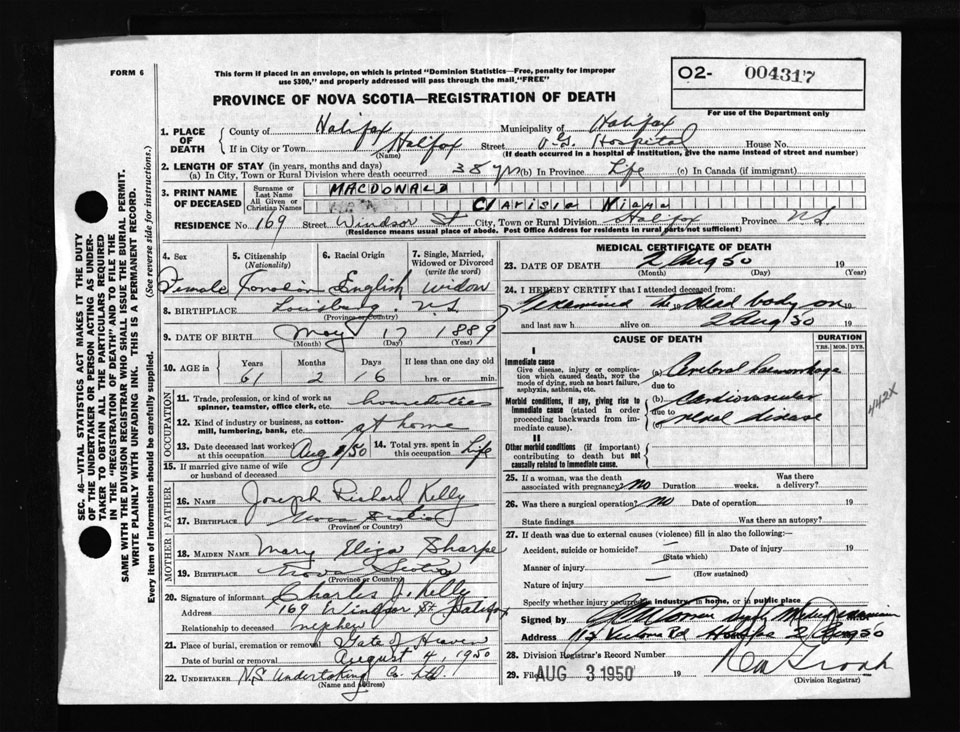 FORM 6
This form if placed in an envelope, on which is printed "Dominion Statistics—Free, penalty for improper
use $300," and properly addressed will pass through the mail "FREE"
O2- 004317
PROVINCE OF NOVA SCOTIA—REGISTRATION OF DEATH
For use of the Department only
1. PLACE OF DEATH
County of Halifax Municipality of Halifax
If in City or Town Halifax Street V.G. Hospital House No.
(Name) (If death occurred in a hospital or institution, give the name instead of street and number)
2. LENGTH OF STAY (in years, months and days)
(a) In City, Town or Rural Division where death occurred 38 yrs (b) In Province Life (c) In Canada (if immigrant)
3. PRINT NAME OF DECEASED
Surname or Last Name MACDONALD
All Given or Christian Names Clarisia
RESIDENCE No. 169 Street Windsor St City, Town or Rural Division Halifax Province N.S.
(Residence means usual place of abode. Post Office Address for residents in rural parts not sufficient)
4. SEX 5. Citizenship (Nationality) 6. Racial Origin 7. Single, Married, Widowed or Divorced (write the word)
Female Canadian English widow
8. BIRTHPLACE Louisburg, N.S.
(Province or Country)
9. DATE OF BIRTH May 17 1889
(Month) (Day) (Year)
10. AGE in Years Months Days If less than one day old
61 2 16 hrs. or min.
OCCUPATION
11. Trade, profession, or kind of work as spinner, teamster, office clerk, etc. home duties
12. Kind of industry or business, as cotton-mill, lumbering, bank, etc. at home
13. Date deceased last worked at this occupation Aug /50 14. Total yrs. spent in this occupation Life
15. If married give name of wife or husband of deceased
FATHER
16. NAME Joseph Richard Kelly
17. BIRTHPLACE Nova Scotia
(Province or Country)
MOTHER
18. MAIDEN NAME Mary Eliza Sharpe
19. BIRTHPLACE Nova Scotia
(Province or Country)
20. Signature of informant Charles J. Kelly
Address 169 Windsor St Halifax
Relationship to deceased nephew
21. Place of burial, cremation or removal Gate of Heaven
Date of burial or removal August 4, 1950
22. UNDERTAKER N.S. Undertaking Co. Ltd.
(Name and address)
MEDICAL CERTIFICATE OF DEATH
23. DATE OF DEATH 2 Aug 50
(Month) (Day) (Year)
24. I HEREBY CERTIFY that I attended deceased from
I examined the 19 dead body on 19
and last saw h alive on 2 Aug 50 19
CAUSE OF DEATH
DURATION
YRS. MOS. DYS.
I
Immediate cause
Give disease, injury or complication which caused death, NOT the mode of dying, such as heart failure, asphyxia, asthenia, etc.
(a) Cerebral haemorrhage
due to
Morbid conditions, if any, giving rise to immediate cause (stated in order proceeding backwards from immediate cause).
(b) Cardiovascular
due to
renal disease
442X
II
Other morbid conditions (if important) contributing to death but not causally related to immediate cause.
25. If a woman, was the death associated with pregnancy? no Duration weeks. Was there a delivery?
26. Was there a surgical operation? no Date of operation 19
State findings Was there an autopsy?
27. If death was due to external causes (violence) fill in also the following:—
Accident, suicide or homicide? — Date of injury 19
(State which)
Manner of injury —
(How sustained)
Nature of injury —
Specify whether injury occurred in industry, in home, or in public place
Signed by
Address 112 Victoria Rd 2 Aug 50
28. Division Registrar's Record Number
29. Filed AUG 3 1950 19
(Division Registrar)
SEC. 46—VITAL STATISTICS ACT MAKES IT THE DUTY
OF THE UNDERTAKER OR PERSON ACTING AS UNDERTAKER
TO OBTAIN ALL THE PARTICULARS REQUIRED
IN THE "REGISTRATION OF DEATH" AND TO FILE THE
SAME WITH THE DIVISION REGISTRAR WHO SHALL ISSUE THE BURIAL PERMIT.
WRITE PLAINLY WITH UNFADING INK. THIS IS A PERMANENT RECORD.
Every item of information should be carefully supplied. (See reverse side for instructions.)